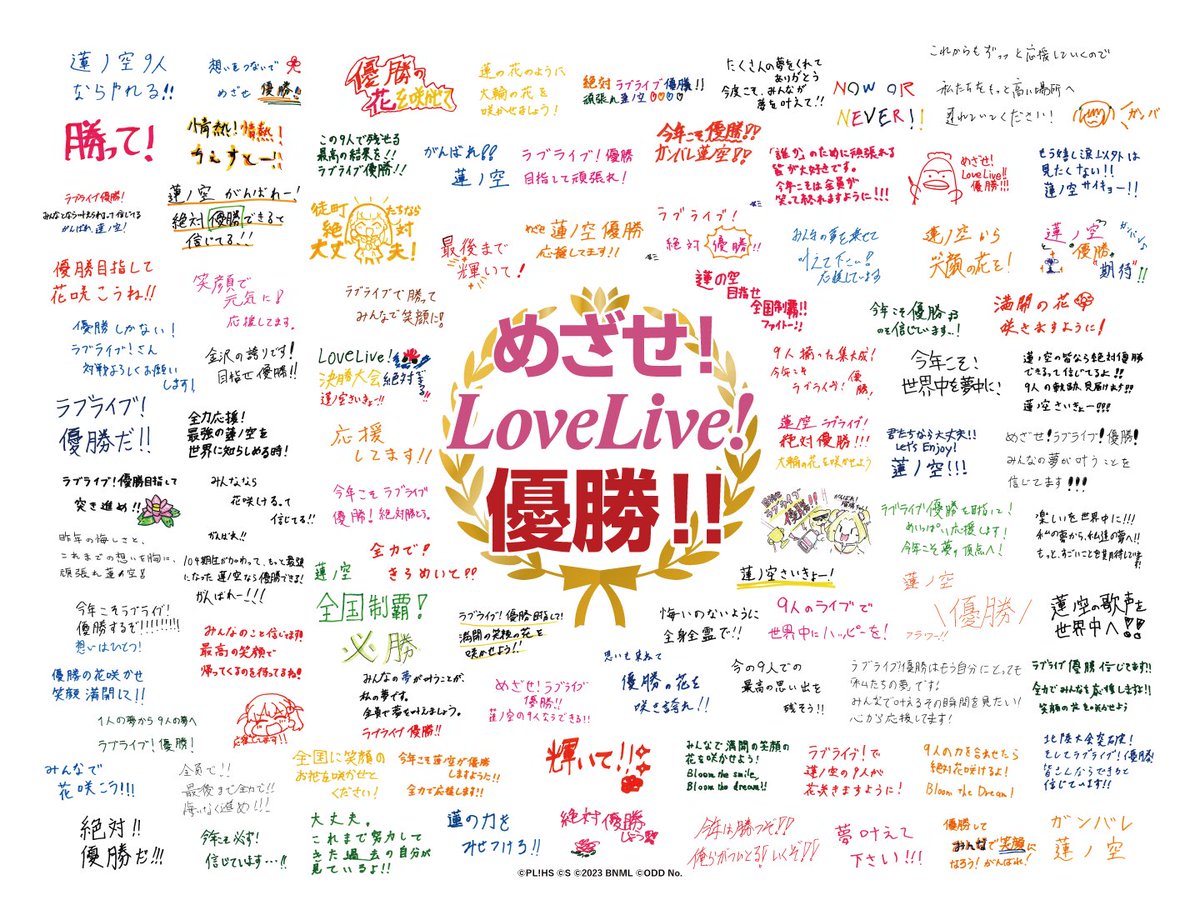 蓮ノ空9人
ならやれる!!
想いをつないで
めざせ 優勝!!
優勝の
花を咲かせて
蓮の花のように
大輪の花を
咲かせましょう!
絶対ラブライブ優勝!!
頑張れ蓮ノ空
たくさんの夢をくれて
ありがとう
今度こそ、みんなが
夢を叶えて!!
NOW OR
NEVER!!
これからもずっと応援していくので
私たちをもっと高い場所へ
連れていってください!
ガンバ
勝って!
情熱!情熱!
ちぇすとー!!
この9人で残せる
最高の結果を!!
ラブライブ優勝!!
がんばれ!!
蓮ノ空
ラブライブ!優勝
目指して頑張れ!
今年こそ優勝!!
ガンバレ蓮ノ空!!
「誰か」のために頑張れる
皆が大好きです。
今年こそは全員が
笑って終われますように!!!
めざせ!
LoveLive!
優勝!!!
もう嬉し涙以外は
見たくない!!
蓮ノ空サイキョー!!
ラブライブ優勝!
みんなならやれるって信じてる
がんばれ、蓮ノ空!
蓮ノ空 がんばれー!
絶対優勝できるって
信じてる!!
徒町たちなら
絶対
大丈夫!
最後まで
輝いて!
めざせ蓮ノ空優勝
応援してます!!
ラブライブ!
絶対優勝!!
みんなの夢を乗せて
叶えてください!
応援しています
蓮ノ空から
笑顔の花を!
蓮ノ空
優勝
期待!!
優勝目指して
花咲こうね!!
笑顔で
元気に!
応援してます。
ラブライブで勝って
みんなで笑顔に!
蓮の空
目指せ
全国制覇!!
ファイトー!!
今年こそ優勝
信じています..!
満開の花
咲きますように!
優勝しかない!
ラブライブ!さん
対戦よろしくお願い
します!
金沢の誇りです!
目指せ優勝!!
LoveLive!
決勝大会
蓮ノ空さいきょー!!
めざせ!
LoveLive!
優勝!!
9人揃った集大成!
今年こそ
ラブライブ!優勝
今年こそ!
世界中を夢中に!
蓮ノ空の皆なら絶対優勝
できるって信じてるよ!!
9人の軌跡、見届けます!!
蓮ノ空さいきょー!!!
ラブライブ!
優勝だ!!
全力応援!
最強の蓮ノ空を
世界に知らしめる時!
応援
してます!!
蓮ノ空 ラブライブ!
絶対優勝!!!
大輪の花を咲かせよう
君たちなら大丈夫!!
Let's Enjoy!
蓮ノ空!!!
めざせ!ラブライブ!優勝!
みんなの夢が叶うことを
信じてます!!!
ラブライブ!優勝目指して
突き進め!!
みんななら
花咲けるって
信じてる!!
今年こそラブライブ
優勝!絶対勝とう。
ラブライブ優勝を目指して!
めいっぱい応援します!
今年こそ夢の頂点へ!
楽しいを世界中に!!!
私の夢から、私達の夢へ!!
昨年の悔しさと、
これまでの想いを胸に、
頑張れ蓮ノ空!!
がんばれ!!
104期生が加わって、もっと最強
になった蓮ノ空なら優勝できるよ!
がんばれー!!!
全力で!
きらめいて!!
蓮ノ空
全国制覇!
蓮ノ空さいきょー!
蓮ノ空
優勝
フラワー!!
蓮ノ空の歌声を
世界中へ!!
今年こそラブライブ!
優勝するぞ!!!!!!!!
想いはひとつ!
みんなのこと信じてます!!
最高の笑顔で
帰ってくるのを待ってるね!
必勝
ラブライブ!優勝目指して!
満開の笑顔の花を
咲かせよう!!
悔いのないように
全身全霊で!!
9人のライブで
世界中にハッピーを!
優勝の花咲かせ
笑顔満開に!!
1人の夢から9人の夢へ
ラブライブ!優勝!
応援してます!!
みんなの夢が叶うことが、
私の夢です。
全員で夢を叶えましょう。
ラブライブ優勝!!
めざせ!ラブライブ
優勝!!
蓮ノ空の9人ならできる!!
思いを束ねて
優勝の花を
咲き誇れ!!
今の9人での
最高の思い出を
残そう!!
ラブライブ優勝はもう自分にとっても
私たちの夢です!
みんなで叶えるその瞬間を見たい!
心から応援してます!
ラブライブ優勝信じてます!!
全力でみんなを応援しますよ!!
笑顔の花を咲かせよう
みんなで
花咲こう!!!
全員で!!
最後まで全力で!!
悔いなく進め!!!
全国に笑顔の
お花を咲かせて
ください!
今年こそ蓮ノ空が優勝
しますように!!
全力で応援します!!
輝いて!!
みんなで満開の笑顔の
花を咲かせよう!
Bloom the smile,
Bloom the dream!!
ラブライブ!で
蓮ノ空の9人が
花咲きますように!
9人の力を合わせたら
絶対花咲けるよ!
Bloom the Dream!
北陸大会突破!
そしてラブライブ!優勝!
皆さんならできると
信じています!!
絶対!!
優勝だ!!!
今年も必ず!
信じています…!!
大丈夫。
これまで努力して
きた過去の自分が
見ているよ!!
蓮の力を
みせつけろ!!
絶対優勝
しよう
今年は勝つぞ!!
俺らがついとる!いくぞ!!
夢叶えて
下さい!!!
優勝して
みんなで笑顔に
なろう!がんばれ!
ガンバレ
蓮ノ空
©PL!HS ©S ©2023 BNML ©ODD No.